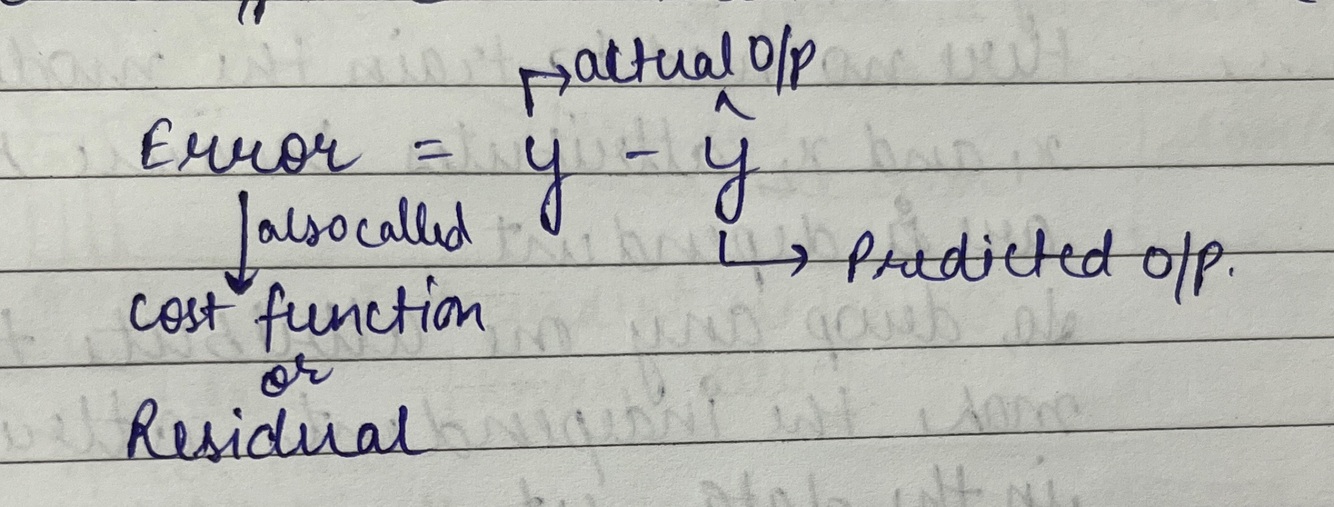 actual O/P
Error = y - ŷ
also called
Predicted o/p.
cost function
or
Residual